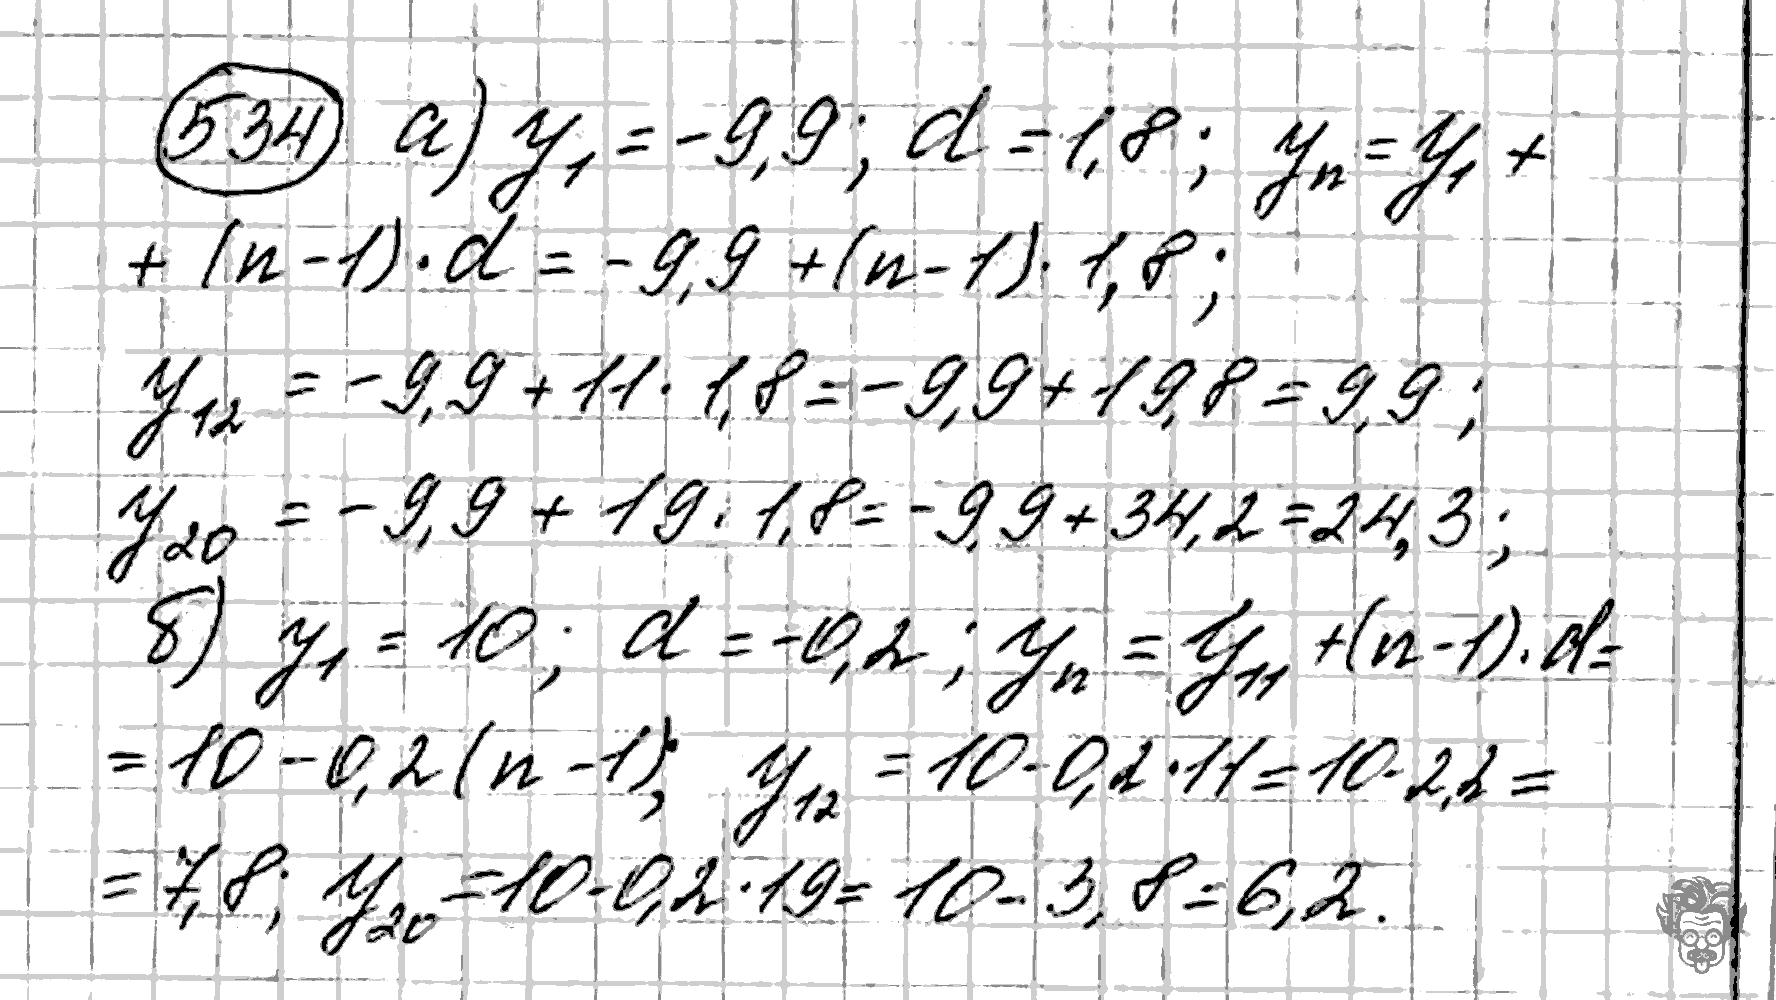 534 а) y₁ = -9,9; d = 1,8; yₙ = y₁ +
+ (n-1)·d = -9,9 + (n-1)·1,8;
y₁₂ = -9,9 + 11·1,8 = -9,9 + 19,8 = 9,9;
y₂₀ = -9,9 + 19·1,8 = -9,9 + 34,2 = 24,3;
б) y₁ = 10; d = -0,2; yₙ = y₁₁ + (n-1)·d =
= 10 - 0,2(n-1); y₁₂ = 10 - 0,2·11 = 10 - 2,2 =
= 7,8; y₂₀ = 10 - 0,2·19 = 10 - 3,8 = 6,2.